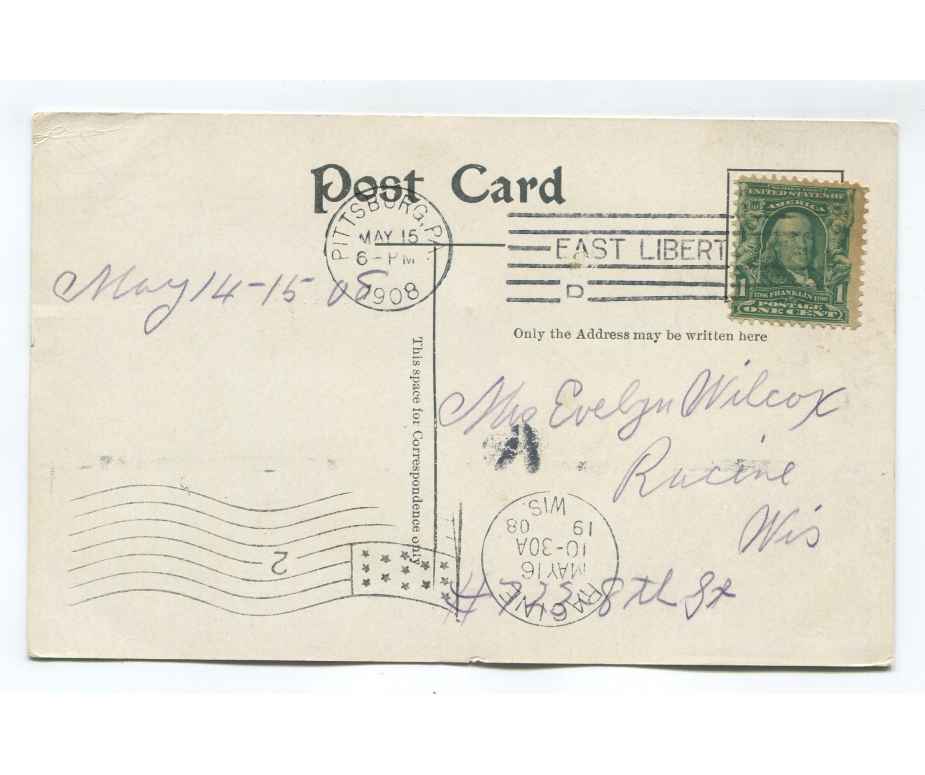 Post Card
PITTSBURG, PA.
MAY 15
6-PM
1908
EAST LIBERT
D
UNITED STATES OF
AMERICA
1706 FRANKLIN 1790
POSTAGE
1 ONE CENT 1
May 14-15 08
Only the Address may be written here
This space for Correspondence only
Mrs Evelyn Wilcox
Racine
Wis
8th St
A
2
RACINE
MAY 16
10-30A
19 08
WIS.